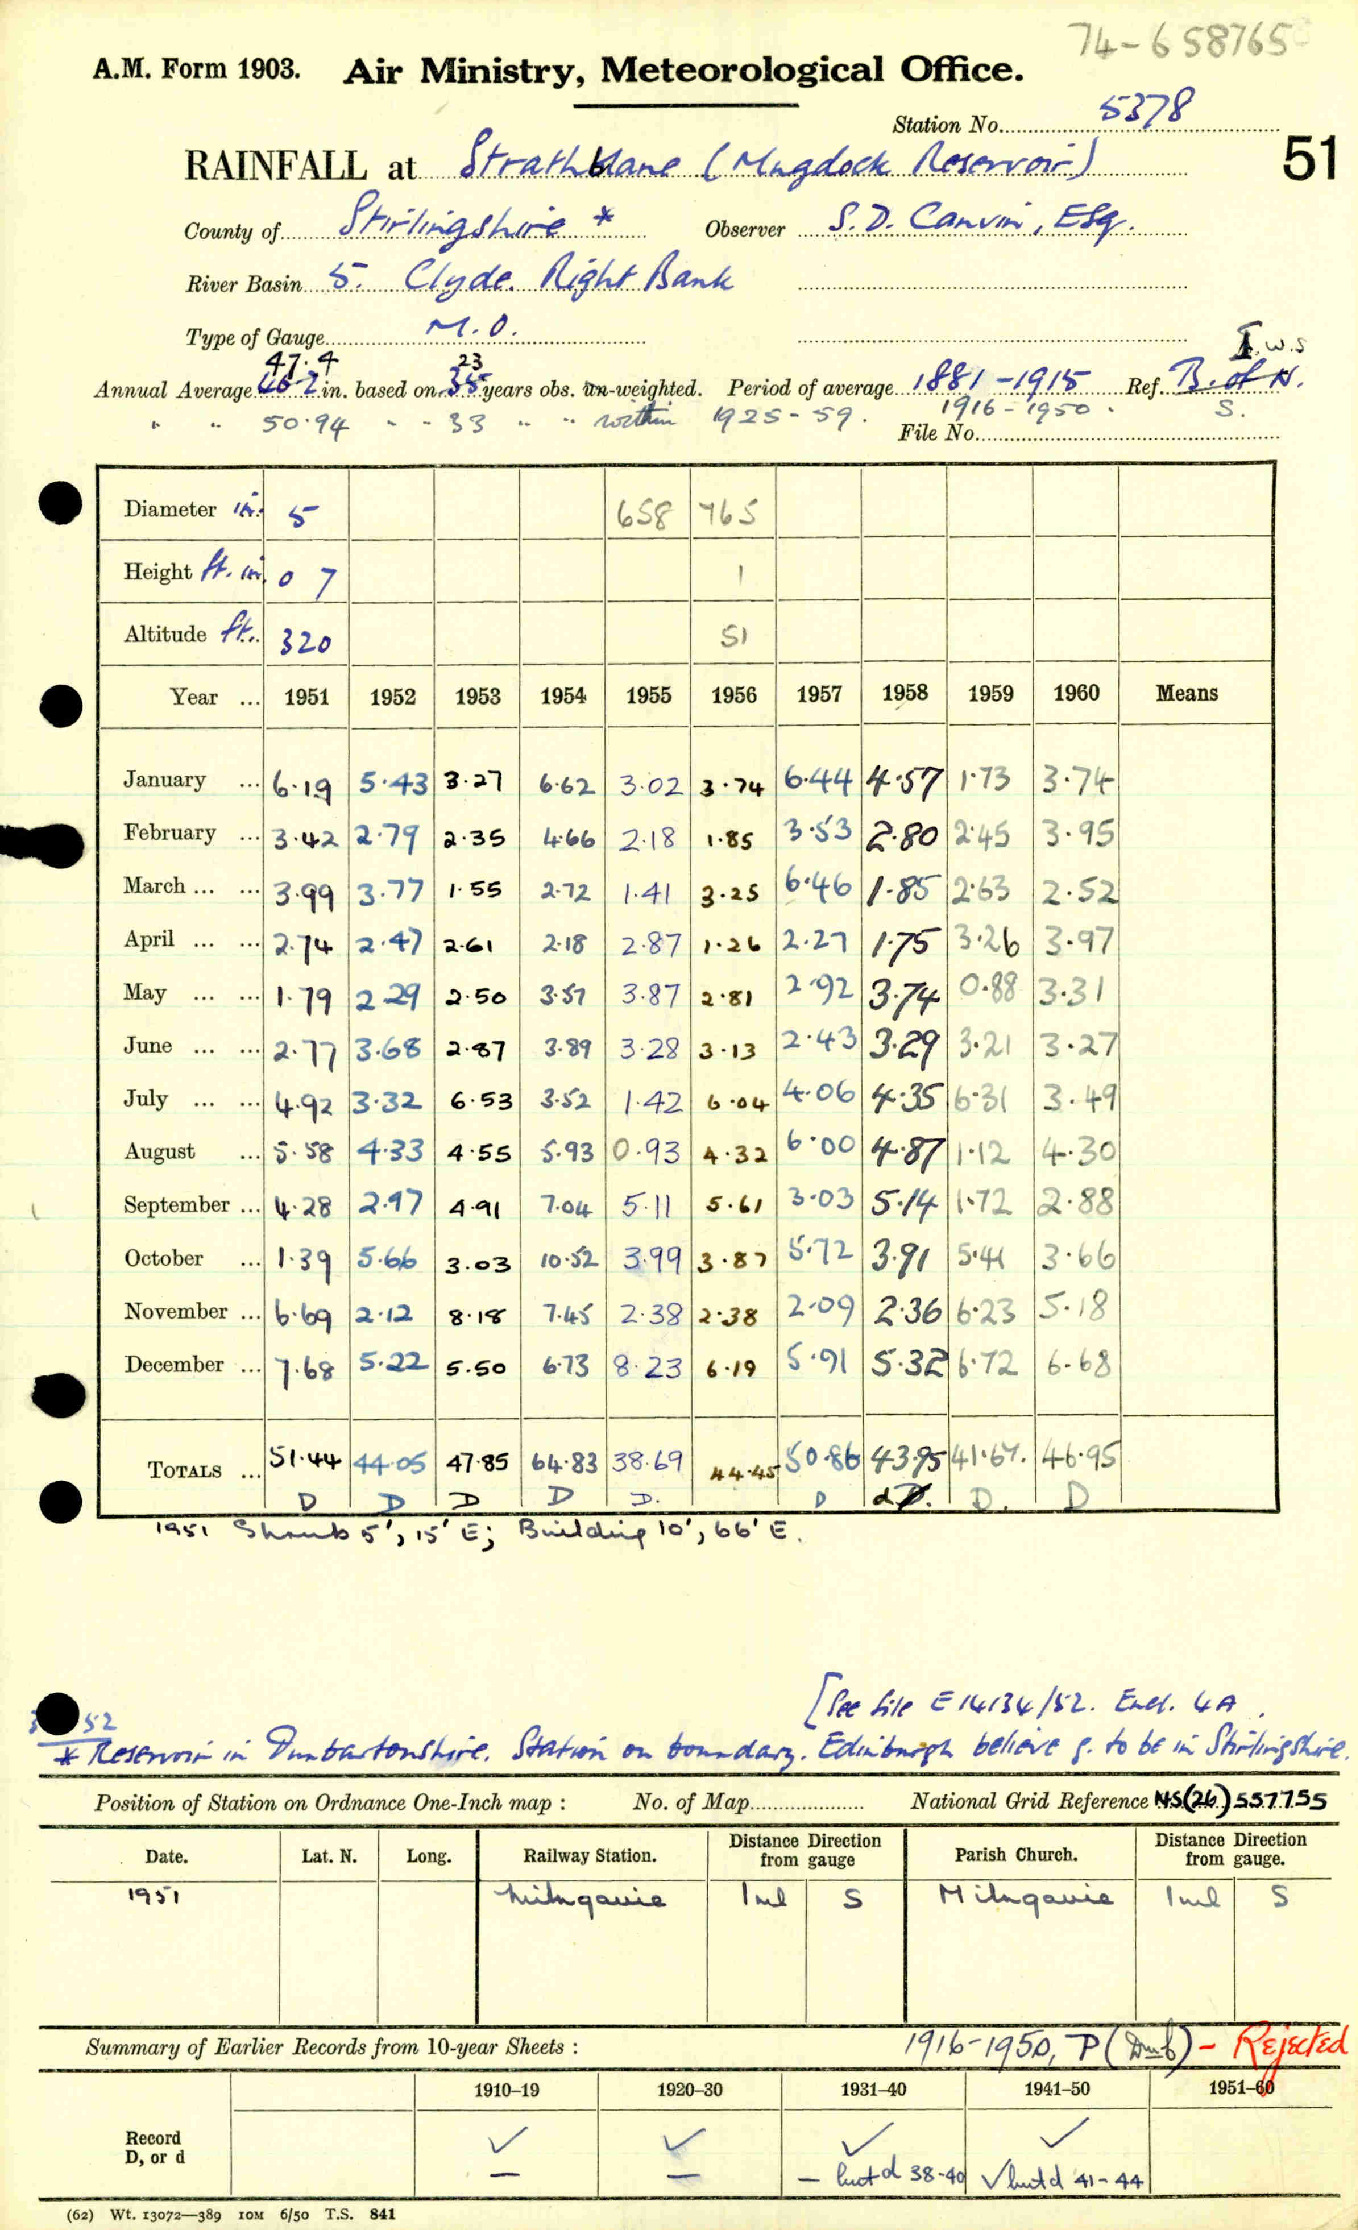 74-658765
A.M. Form 1903. Air Ministry, Meteorological Office.
Station No. 5378
51
RAINFALL at Strathblane (Mugdock Reservoir)
County of Stirlingshire * Observer S.D. Canvin, Esq.
River Basin 5. Clyde. Right Bank
Type of Gauge M.O.
47.4 23 I.W.S
Annual Average 46.2 in. based on 35 years obs. un-weighted. Period of average 1881-1915 Ref. B. of N.
" " 50.94 " " 33 " " within 1925-59. 1916-1950. S.
File No.
Diameter in. 5 658 765
Height ft. in. 0 7 1
Altitude ft. 320 51
Year ... 1951 1952 1953 1954 1955 1956 1957 1958 1959 1960 Means
January ... 6.19 5.43 3.27 6.62 3.02 3.74 6.44 4.57 1.73 3.74
February ... 3.42 2.79 2.35 4.66 2.18 1.85 3.53 2.80 2.45 3.95
March ... ... 3.99 3.77 1.55 2.72 1.41 3.25 6.46 1.85 2.63 2.52
April ... ... 2.74 2.47 2.61 2.18 2.87 1.26 2.27 1.75 3.26 3.97
May ... ... 1.79 2.29 2.50 3.57 3.87 2.81 2.92 3.74 0.88 3.31
June ... ... 2.77 3.68 2.87 3.89 3.28 3.13 2.43 3.29 3.21 3.27
July ... ... 4.92 3.32 6.53 3.52 1.42 6.04 4.06 4.35 6.31 3.49
August ... 5.58 4.33 4.55 5.93 0.93 4.32 6.00 4.87 1.12 4.30
September ... 4.28 2.97 4.91 7.04 5.11 5.61 3.03 5.14 1.72 2.88
October ... 1.39 5.66 3.03 10.52 3.99 3.87 5.72 3.91 5.41 3.66
November ... 6.69 2.12 8.18 7.45 2.38 2.38 2.09 2.36 6.23 5.18
December ... 7.68 5.22 5.50 6.73 8.23 6.19 5.91 5.32 6.72 6.68
TOTALS ... 51.44 44.05 47.85 64.83 38.69 44.45 50.86 43.95 41.67. 46.95
D D D D D. D d D. D. D
1951 Shrub 5', 15' E; Building 10', 66' E.
[See file E 14134/52. Encl. 4A.
52
* Reservoir in Dunbartonshire. Station on boundary. Edinburgh believe g. to be in Stirlingshire.
Position of Station on Ordnance One-Inch map : No. of Map National Grid Reference NS(26)557755
Date. Lat. N. Long. Railway Station. Distance Direction from gauge Parish Church. Distance Direction from gauge.
1951 Milngavie 1 ml S Milngavie 1 ml S
Summary of Earlier Records from 10-year Sheets : 1916-1950, P (Dumb) - Rejected
1910-19 1920-30 1931-40 1941-50 1951-60
Record D, or d ✓ ✓ ✓ ✓
— — — but d 38-40 ✓ but d 41-44
(62) Wt. 13072—389 10M 6/50 T.S. 841